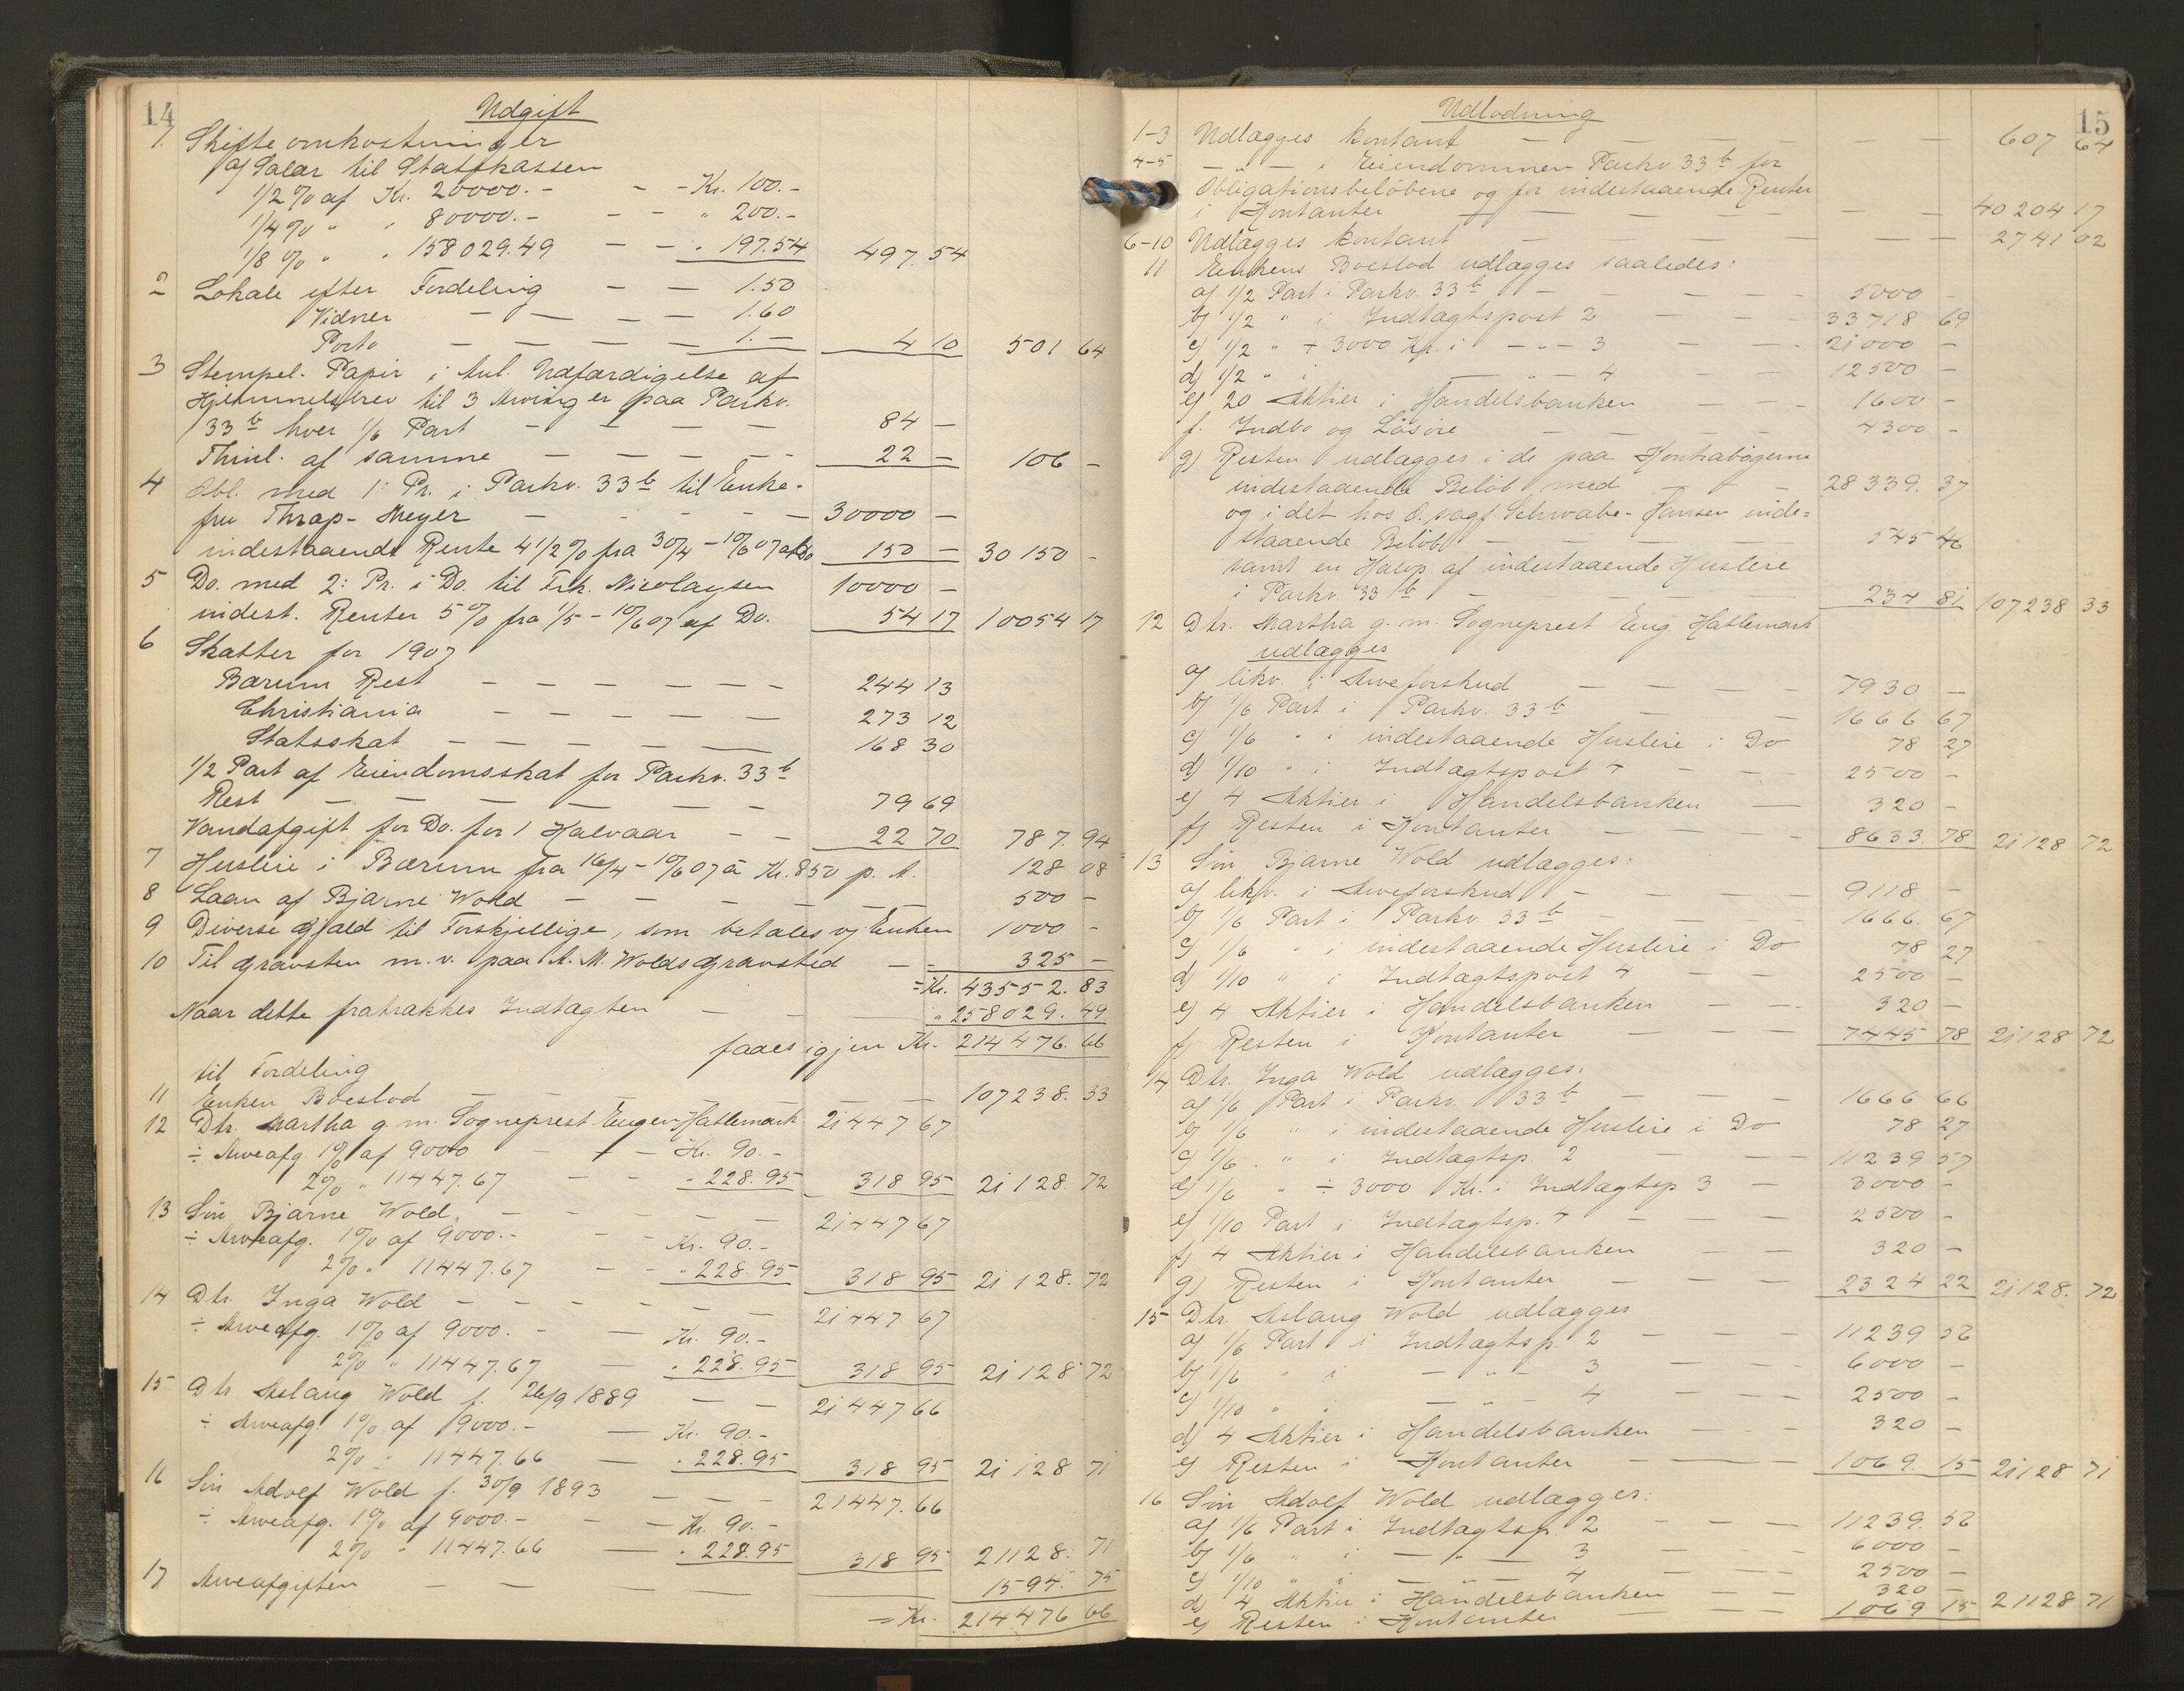 14
Udgift
1. Skifteomkostninger
a) Salær til Statskassen
1/2 % af Kr. 20000.- - - Kr. 100.-
1/4 % " " 80000.- - - " 200.-
1/8 % " " 158029.49 - - " 197.54 497.54
2 Lokale efter Fordeling - - 1.50
Vidner - - - - 1.60
Porto - - - - 1.- 4 10 501 64
3 Stempel. Papir i Anl. Udfærdigelse af
Hjemmelsbrev til 3 Arvinger paa Parkv.
33 b hver 1/6 Part - - - - 84 -
Thinl. af samme - - - - - 22 - 106 -
4 Obl. med 1: Pr. i Parkv. 33 b til Enke-
fru Thrap-Meyer - - - - - 30000 -
indestaaende Rente 4 1/2 % fra 30/4 - 10/6 07 af Do 150 - 30150 -
5 Do. med 2: Pr. i Do. til Frk. Nicolaysen 10000 -
indest. Renter 5 % fra 1/5 - 10/6 07 af Do. 54 17 10054 17
6 Skatter for 1907
Bærum Rest - - - - - - 244 13
Christiania - - - - - 273 12
Statsskat - - - - - 168 30
1/2 Part af Eiendomsskat for Parkv. 33 b
Rest - - - - - - 79 69
Vandafgift for Do. for 1 Halvaar - - 22 70 787.94
7 Husleie i Bærum fra 16/4 - 10/6 07 à Kr. 850 p. A. 128 08
8 Laan af Bjarne Wold - - - - - - 500 -
9 Diverse Gjæld til Forskjellige, som betales af Enken 1000 -
10 Til Gravsten m.v. paa A. M. Wolds Gravsted - - 325 -
= Kr. 43552.83
Naar dette fratrækkes Indtægten - - - " 258029.49
faaes igjen Kr. 214476.66
til Fordeling
11 Enken Boeslod - - - - - 107238.33
12 Dtr. Martha g. m. Sogneprest Eugen Hatlemark 21447 67
÷ Arveafg. 1 % af 9000 - - - Kr. 90.-
2 % " 11447.67 - - " 228.95 318 95 21128.72
13 Søn Bjarne Wold. - - - - - 21447 67
÷ Arveafg. 1 % af 9000.- - - Kr. 90.-
2 % " 11447.67 - - " 228.95 318 95 21128.72
14 Dtr. Inga Wold - - - - - - 21447 67
÷ Arveafg. 1 % af 9000.- - Kr. 90.-
2 % " 11447.67 - " 228.95 318 95 21128 72
15 Dtr Aslaug Wold f. 26/9 1889 - - 21447 66
÷ Arveafg. 1 % af 9000.- - Kr. 90.-
2 % " 11447.66 - " 228.95 318 95 21128 71
16 Søn Adolf Wold f. 30/9 1893 - - - 21447.66
÷ Arveafg. 1 % af 9000.- - - Kr. 90.-
2 % " 11447.66 - " 228.95 318 95 21128.71
17 Arveafgiften - - - - - 1594.75
= Kr. 214476 66
15
Udlodning
1-3 Udlægges kontant - - - - - - 607 64
4-5 - " - i Eiendommen Parkv. 33 b for
Obligationsbeløbene og for indestaaende Renter
i Kontanter - - - - - - 40204 17
6-10 Udlægges kontant - - - - - - 2741 02
11 Enkens Boeslod udlægges saaledes:
a) 1/2 Part i Parkv. 33 b - - - - 5000 -
b) 1/2 " i Indtægtspost 2 - - - 33718 69
c) 1/2 " + 3000 Kr. i - " - 3 - - 21000 -
d) 1/2 " i - " - 4 - - 12500 -
e) 20 Aktier i Handelsbanken - - - 1600 -
f. Indbo og Løsøre - - - 4300 -
g) Resten udlægges i de paa Kontrabøgerne
indestaaende Beløb med - - - 28339.37
og i det hos O. sagf. Schwabe-Hansen inde=
staaende Beløb - - - - 545 46
samt en Halvp. af indestaaende Husleie
i Parkv. 33 b - - - - 234 81 107238 33
12 Dtr. Martha g. m. Sogneprest Eug. Hatlemark
udlægges
a) likv. i Arveforskud - - - - 7930 -
b) 1/6 Part i Parkv. 33 b - - 1666 67
c) 1/6 " i indestaaende Husleie i Do 78 27
d) 1/10 " i Indtægtspost 4 - - - 2500 -
e) 4 Aktier i Handelsbanken - 320 -
f) Resten i Kontanter - - - - 8633.78 21128 72
13 Søn Bjarne Wold udlægges:
a) likv. i Arveforskud - - - - 9118 -
b) 1/6 Part i Parkv. 33 b - - - - 1666.67
c) 1/6 " i indestaaende Husleie i Do 78 27
d) 1/10 " i Indtægtspost 4 - - 2500 -
e) 4 Aktier i Handelsbanken - - 320 -
f) Resten i Kontanter - - - 7445 78 21128 72
14 Dtr. Inga Wold udlægges:
a) 1/6 Part i Parkv. 33 b - - - 1666 66
b) 1/6 " i indestaaende Husleie i Do 78 27
c) 1/6 " i Indtægtsp. 2 - - - 11239 57
d) 1/6 " ÷ 3000 Kr. i Indtægtsp 3 - 3000 -
e) 1/10 Part i Indtægtsp. 4 - - - 2500 -
f) 4 Aktier i Handelsbanken - - 320 -
g) Resten i Kontanter - - - 2324 22 21128.72
15 Dtr. Aslaug Wold udlægges
a) 1/6 Part i Indtægtsp. 2 - - - 11239 56
b) 1/6 " i - " - 3 - - 6000 -
c) 1/10 " i - " - 4 - - - 2500 -
d) 4 Aktier i Handelsbanken - - - 320 -
e) Resten i Kontanter - - - 1069.15 21128 71
16 Søn Adolf Wold udlægges:
a) 1/6 Part i Indtægtsp. 2 - - - 11239.56
b) 1/6 " i - " - 3 - - 6000 -
c) 1/10 " i - " - 4 - - 2500 -
d) 4 Aktier i Handelsbanken - - 320 -
e) Resten i Kontanter - - 1069 15 21128 71